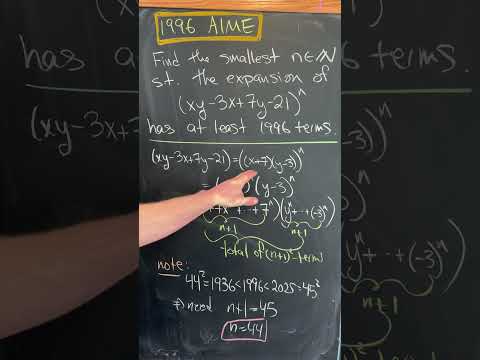 1996 AIME
Find the smallest n∈ℕ
st. the expansion of
(xy-3x+7y-21)^n
has at least 1996 terms.
(xy-3x+7y-21)^n = ((x+7)(y-3))^n
= ( )^n (y-3)^n
+x + ... + 7^n)(y^n + ... + (-3)^n)
n+1 n+1
total of (n+1)^2 terms
note:
44^2=1936<1996<2025=45^2
need n+1=45
n=44